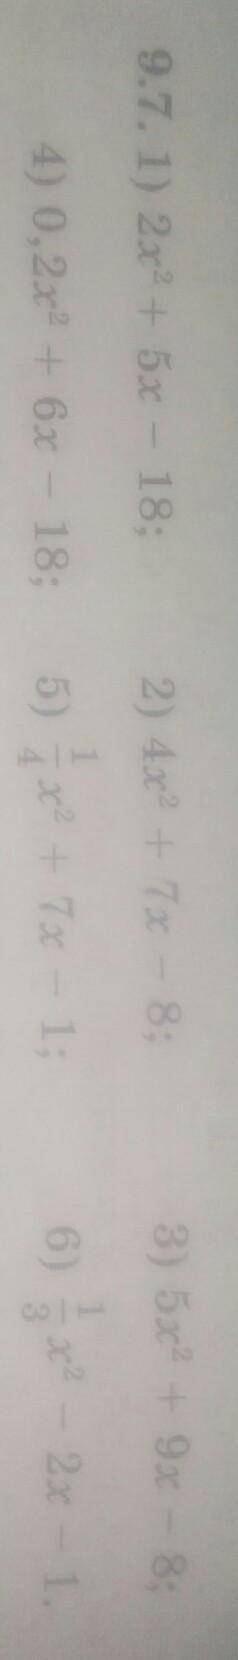 9.7. 1) 2x² + 5x − 18; 2) 4x² + 7x − 8; 3) 5x² + 9x − 8;
4) 0,2x² + 6x − 18; 5) 1/4 x² + 7x − 1; 6) 1/3 x² − 2x − 1.